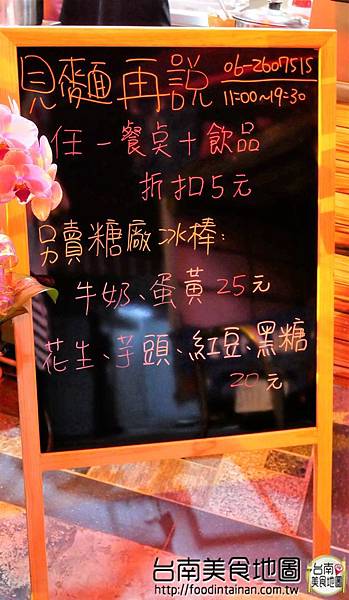 見麵再說 06-2607515
11:00～19:30
任一餐桌+飲品
折扣5元
另賣糖廠冰棒:
牛奶、蛋黃25元
花生、芋頭、紅豆、黑糖
20元
台南美食地圖
http://foodintainan.com.tw/
台南
美食地圖